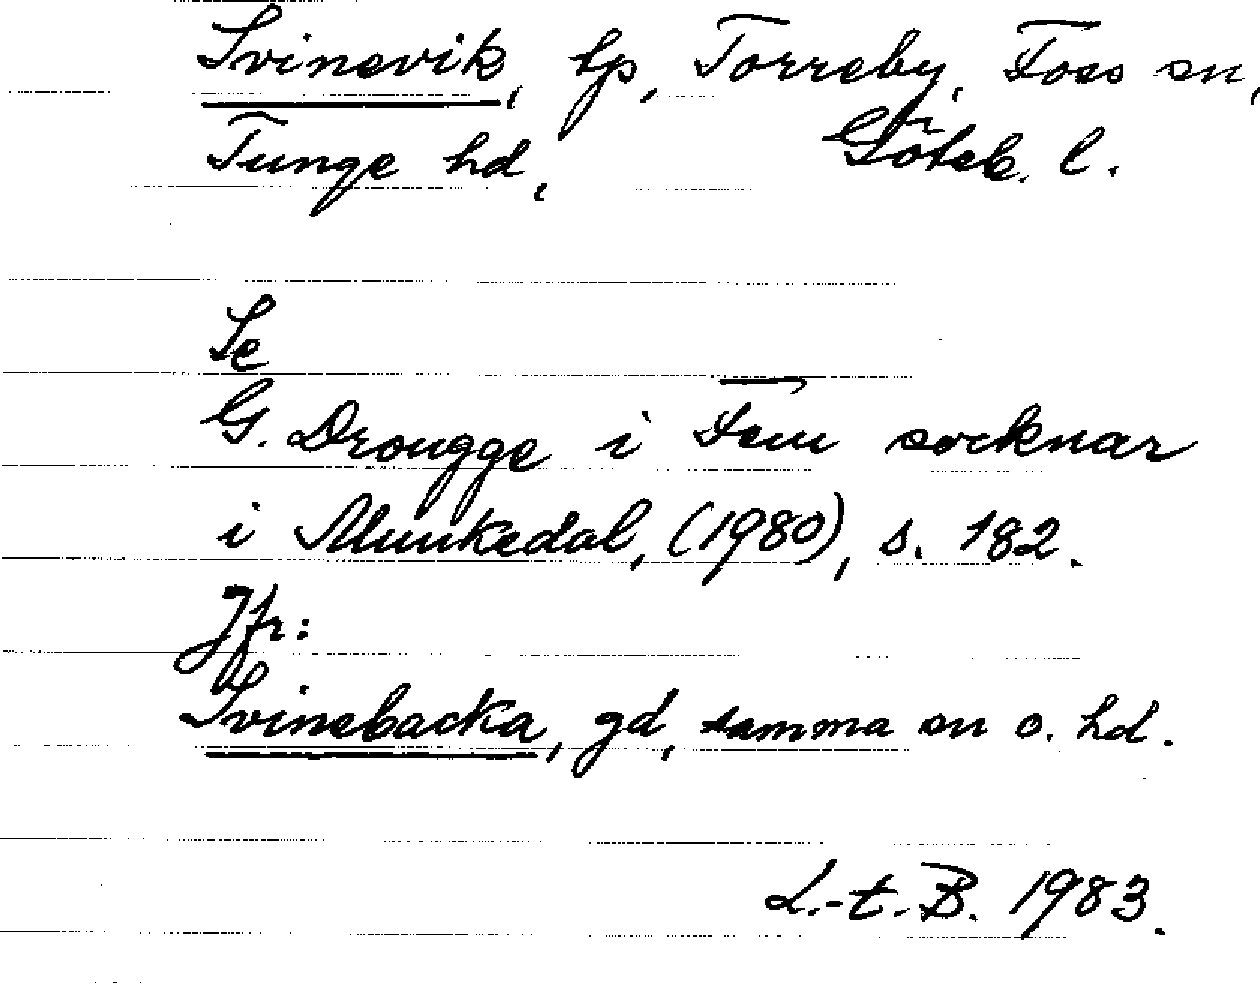 Svinevik, tp, Torreby, Foss sn,
Tunge hd, Göteb. l.
Se
G. Drougge i Fem socknar
i Munkedal, (1980), s. 182.
Jfr:
Svinebacka, gd, samma sn o. hd.
L.-t. B. 1983.